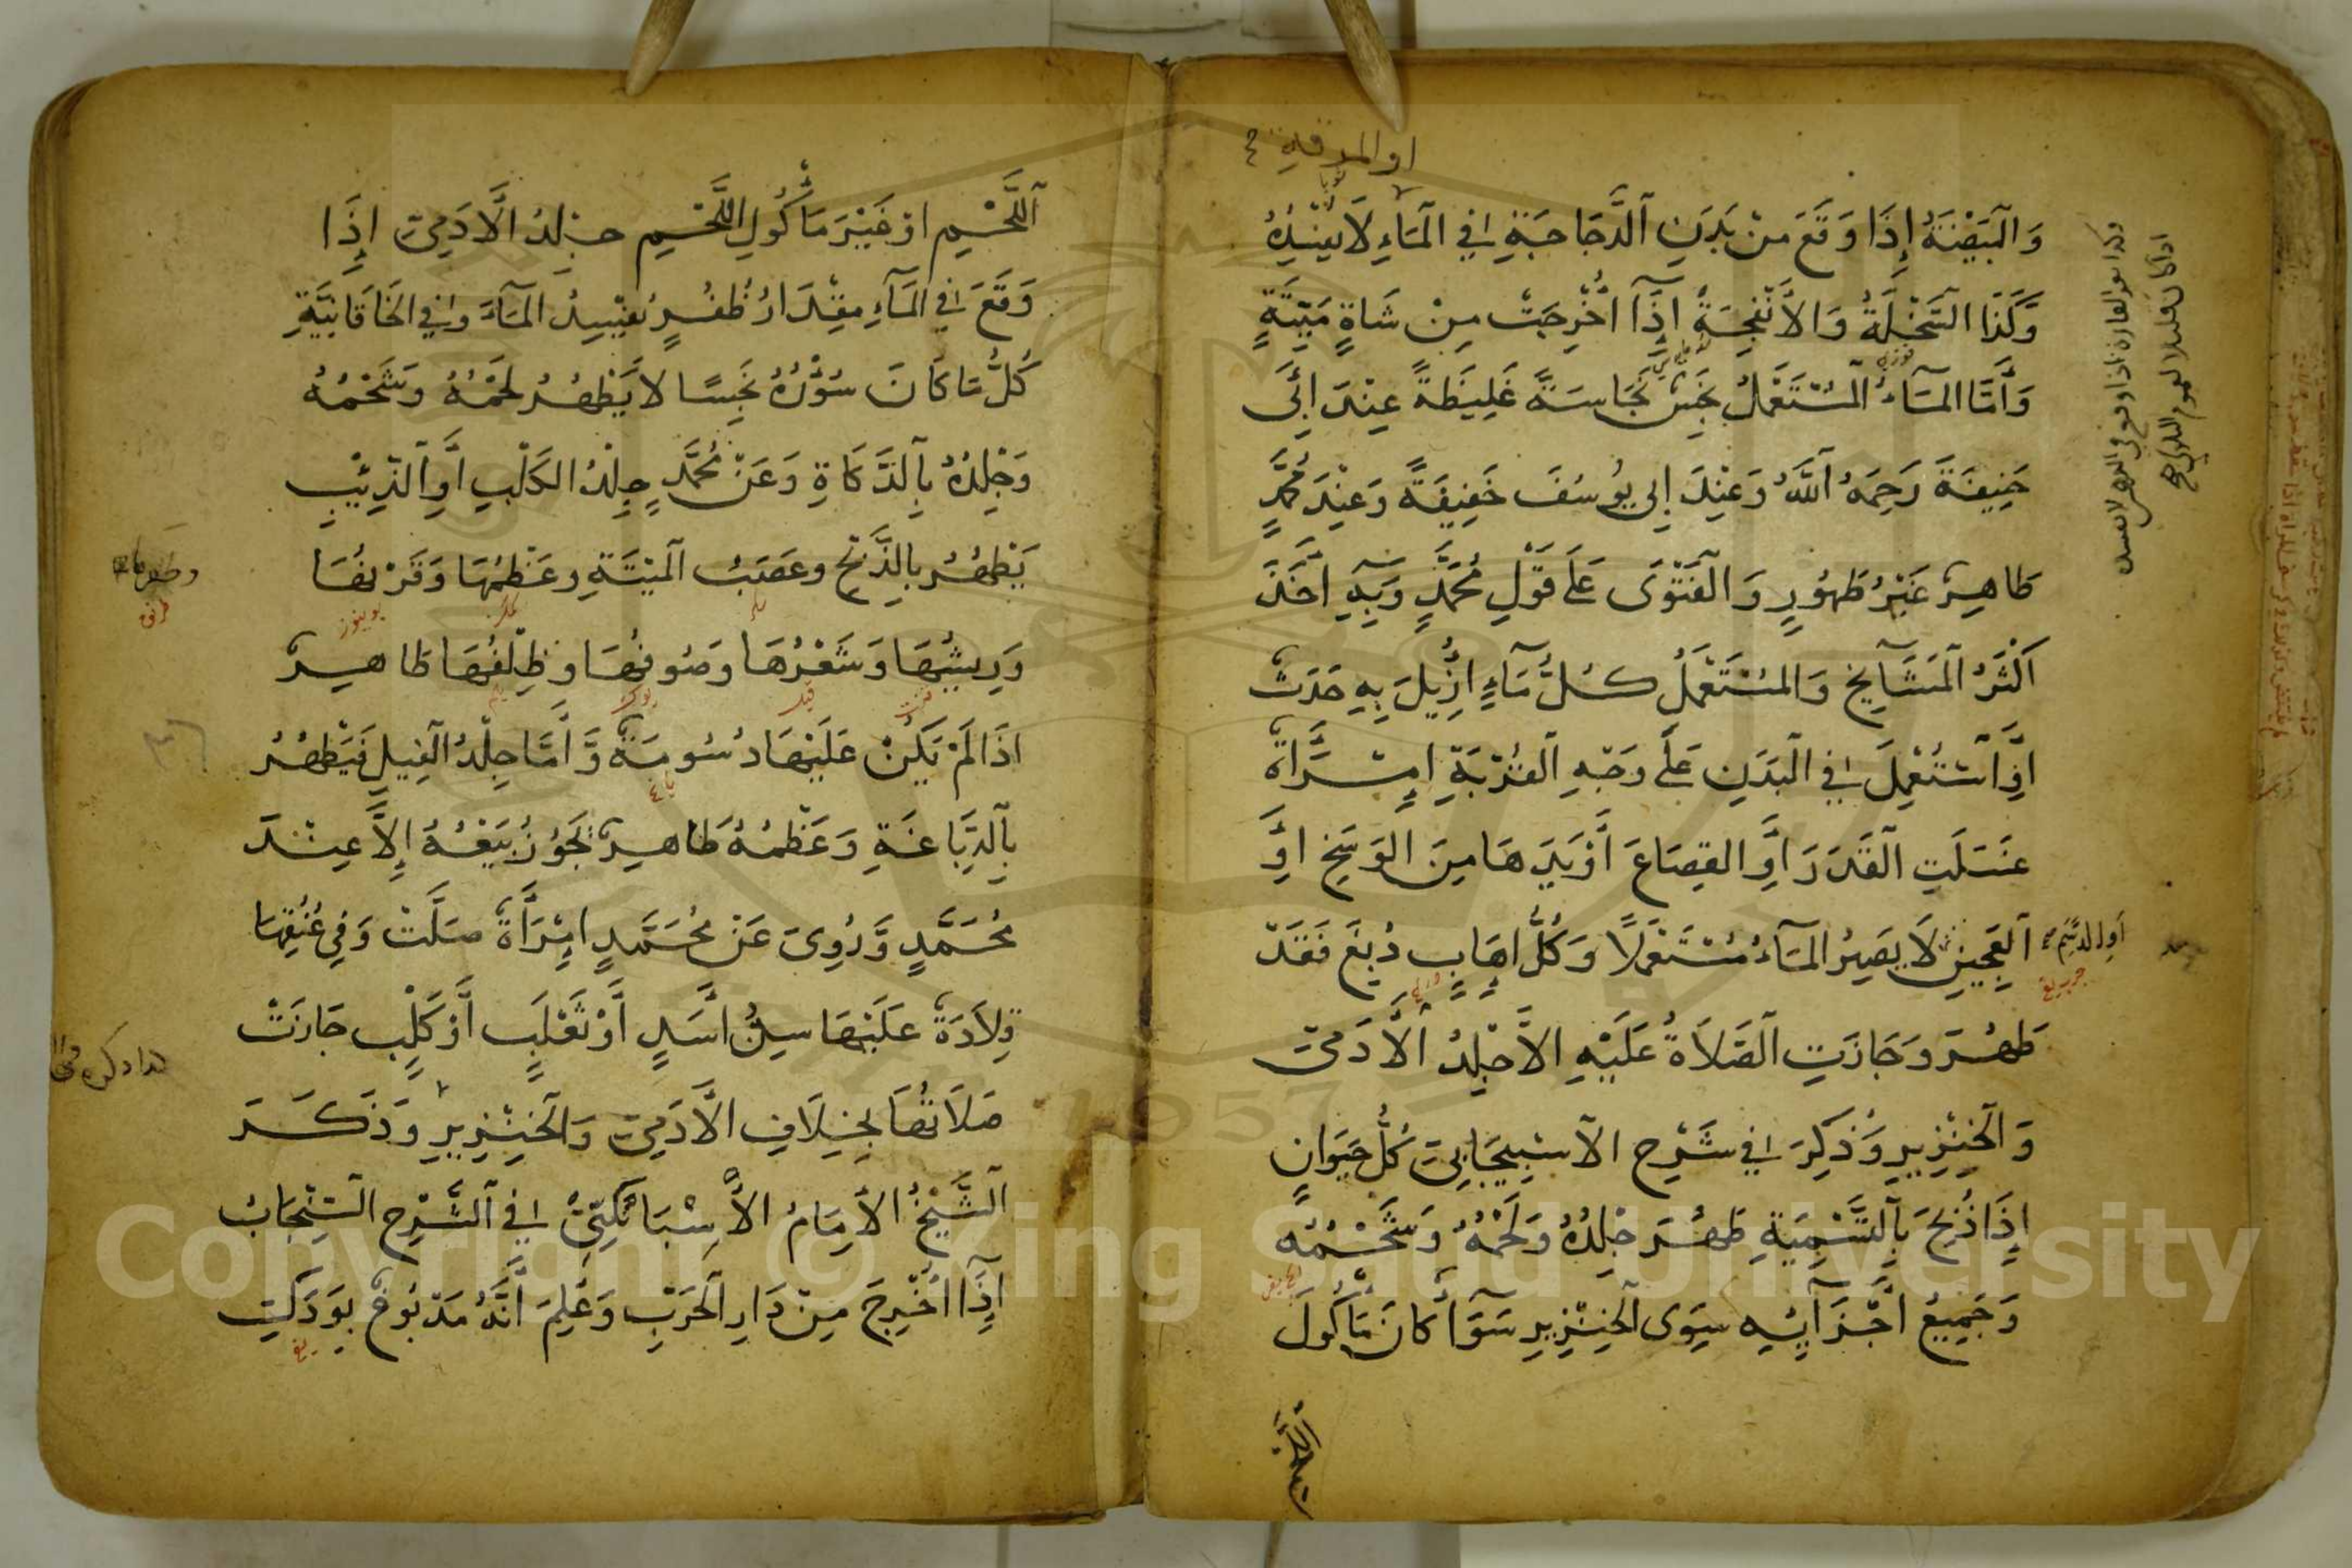 او المرقة
وَالْبَيْضَةُ إِذَا وَقَعَ مِنْ بَدَنِ الدَّجَاجَةِ فِي الْمَاءِ لَا يُفْسِدُهُ
وَكَذَا السَّخْلَةُ وَالْأَنْفِحَةُ إِذَا أُخْرِجَتْ مِنْ شَاةٍ مَيْتَةٍ
وَأَمَّا الْمَاءُ الْمُسْتَعْمَلُ نَجَسٌ نَجَاسَةً غَلِيظَةً عِنْدَ أَبِي
حَنِيفَةَ رَحِمَهُ اللَّهُ وَعِنْدَ أَبِي يُوسُفَ خَفِيفَةً وَعِنْدَ مُحَمَّدٍ
طَاهِرٌ غَيْرُ طَهُورٍ وَالْفَتْوَى عَلَى قَوْلِ مُحَمَّدٍ وَبِهِ أَخَذَ
أَكْثَرُ الْمَشَايِخِ وَالْمُسْتَعْمَلُ كُلُّ مَاءٍ أُزِيلَ بِهِ حَدَثٌ
أَوِ اسْتُعْمِلَ فِي الْبَدَنِ عَلَى وَجْهِ الْقُرْبَةِ إِمْرَأَةٌ
غَسَلَتِ الْقَدَرَ أَوِ الْقِصَاعَ أَوْ يَدَهَا مِنَ الْوَسَخِ أَوِ
الْعَجِينِ لَا يَصِيرُ الْمَاءُ مُسْتَعْمَلًا وَكُلُّ إِهَابٍ دُبِغَ فَقَدْ
طَهُرَ وَجَازَتِ الصَّلَاةُ عَلَيْهِ إِلَّا جِلْدُ الْآدَمِيِّ
وَالْخِنْزِيرِ وَذُكِرَ فِي شَرْحِ الْاسْبِيجَابِيِّ كُلُّ حَيَوَانٍ
إِذَا ذُبِحَ بِالتَّسْمِيَةِ طَهُرَ جِلْدُهُ وَلَحْمُهُ وَشَحْمُهُ
وَجَمِيعُ أَجْزَائِهِ سِوَى الْخِنْزِيرِ سَوَاءٌ كَانَ مَأْكُولَ
اللَّحْمِ أَوْ غَيْرَ مَأْكُولِ اللَّحْمِ جِلْدُ الْآدَمِيِّ إِذَا
وَقَعَ فِي الْمَاءِ مِقْدَارُ ظُفُرٍ يُفْسِدُ الْمَاءَ وَفِي الْخَاقَانِيَّةِ
كُلُّ مَا كَانَ سُؤْرُهُ نَجِسًا لَا يَطْهُرُ لَحْمُهُ وَشَحْمُهُ
وَجِلْدُهُ بِالذَّكَاةِ وَعَنْ مُحَمَّدٍ جِلْدُ الْكَلْبِ أَوِ الذِّئْبِ
يَطْهُرُ بِالذَّبْحِ وَعَصَبُ الْمَيْتَةِ وَعَظْمُهَا وَقَرْنُهَا
وَرِيشُهَا وَشَعْرُهَا وَصُوفُهَا وَظِلْفُهَا طَاهِرٌ
إِذَا لَمْ يَكُنْ عَلَيْهَا دُسُومَةٌ وَأَمَّا جِلْدُ الْفِيلِ فَيَطْهُرُ
بِالدِّبَاغَةِ وَعَظْمُهُ طَاهِرٌ يَجُوزُ بَيْعُهُ إِلَّا عِنْدَ
مُحَمَّدٍ وَرُوِيَ عَنْ مُحَمَّدٍ إِمْرَأَةٌ صَلَّتْ وَفِي عُنُقِهَا
قِلَادَةٌ عَلَيْهَا سِنُّ أَسَدٍ أَوْ ثَعْلَبٍ أَوْ كَلْبٍ جَازَتْ
صَلَاتُهَا بِخِلَافِ الْآدَمِيِّ وَالْخِنْزِيرِ وَذَكَرَ
الشَّيْخُ الْإِمَامُ الْأَسْبَاتَكِتِيُّ فِي الشَّرْحِ السِّنْجَابُ
إِذَا أُخْرِجَ مِنْ دَارِ الْحَرْبِ وَعُلِمَ أَنَّهُ مَدْبُوغٌ بِوَدَكِ